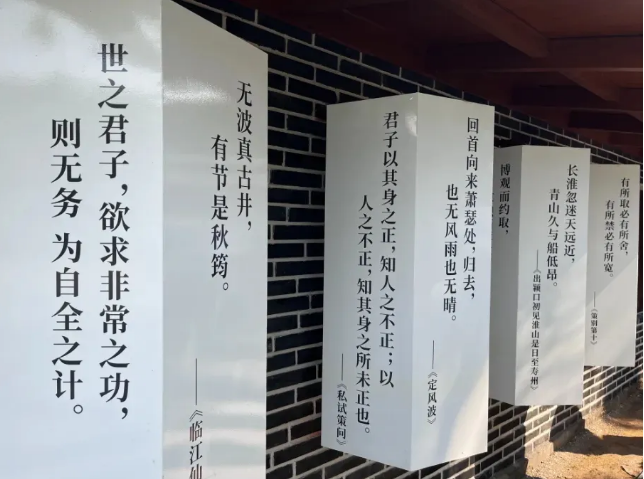 世之君子，欲求非常之功，
则无务 为自全之计。
无波真古井，
有节是秋筠。
——《临江仙
君子以其身之正，知人之不正；以
人之不正，知其身之所未正也。
——《私试策问》
回首向来萧瑟处，归去，
也无风雨也无晴。
——《定风波》
博观而约取，
长淮忽迷天远近，
青山久与船低昂。
——《出颍口初见淮山是日至寿州》
有所取必有所舍，
有所禁必有所宽。
——《策别第十》